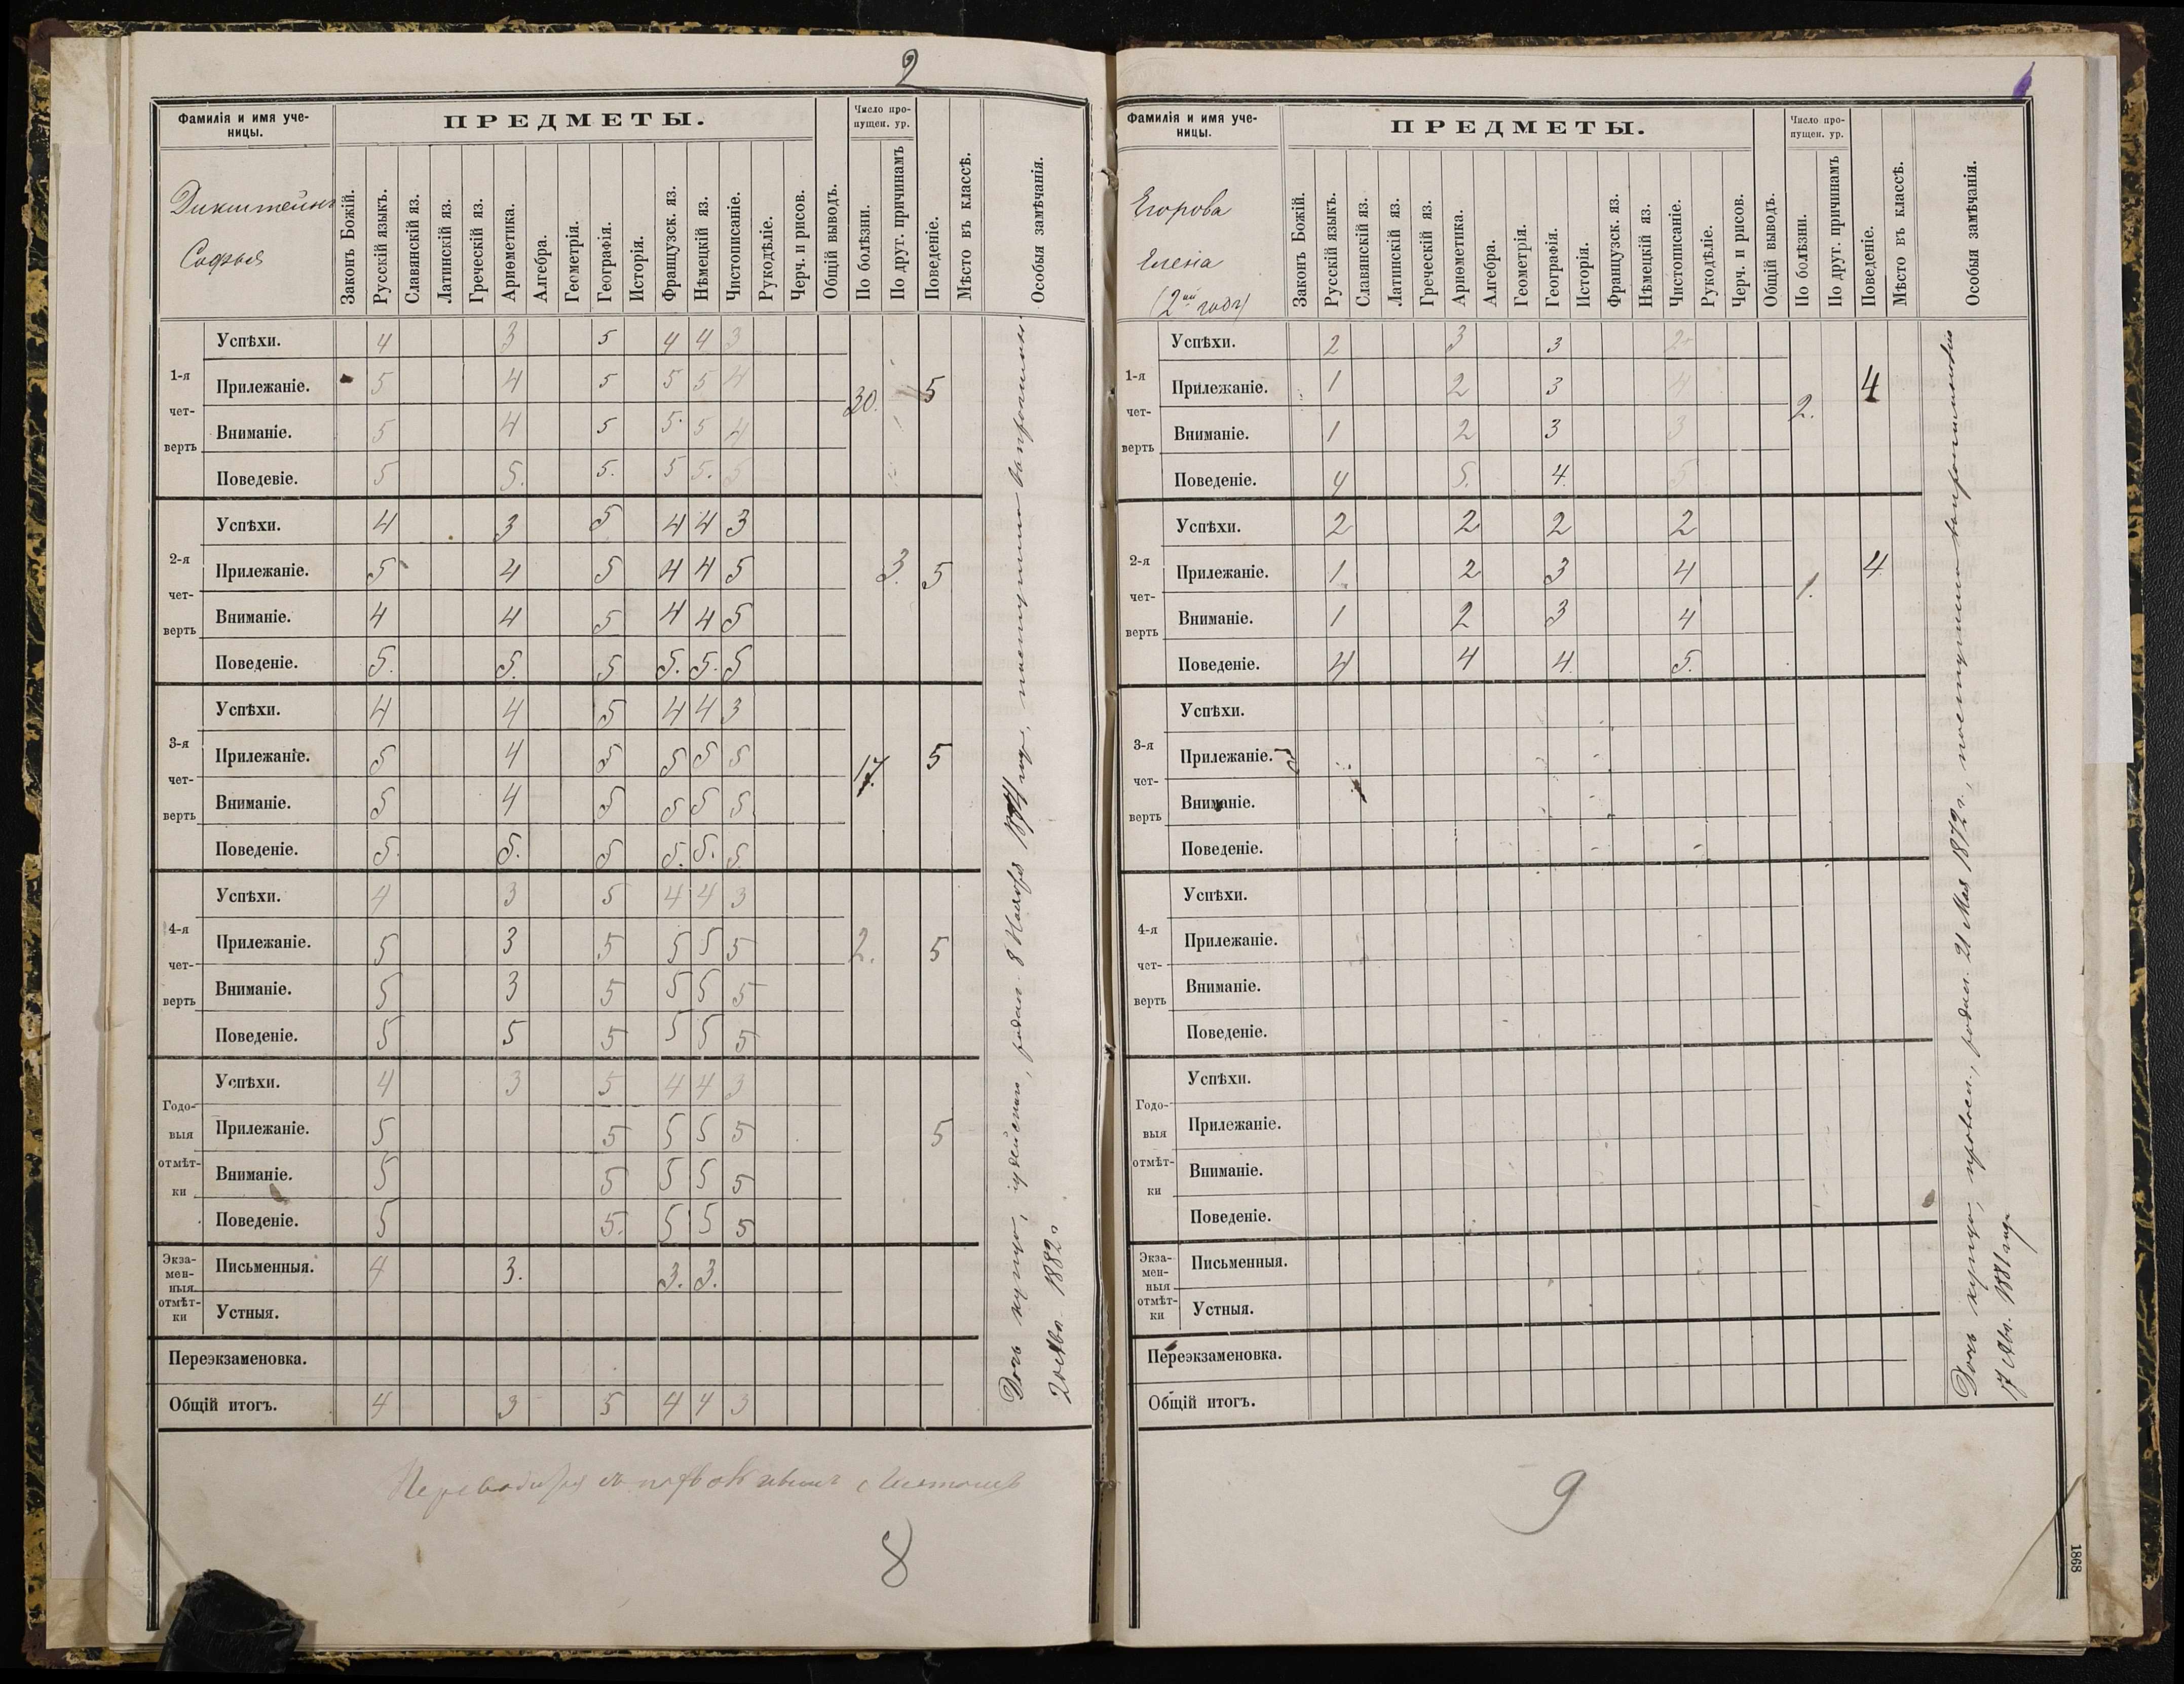 2
Фамилія и имя уче-
ницы.
ПРЕДМЕТЫ.
Число про-
пущен. ур.
Дикштейнъ
Софья
Законъ Божій.
Русскій языкъ.
Славянскій яз.
Латинскій яз.
Греческій яз.
Ариѳметика.
Алгебра.
Геометрія.
Географія.
Исторія.
Французск. яз.
Нѣмецкій яз.
Чистописаніе.
Рукодѣліе.
Черч. и рисов.
Общій выводъ.
По болѣзни.
По друг. причинамъ
Поведеніе.
Мѣсто въ классѣ.
Особыя замѣчанія.
1-я четверть
Успѣхи. 4 3 5 4 4 3
Прилежаніе. 5 4 5 5 5 4
Вниманіе. 5 4 5 5 5 4
Поведевіе. 5 5. 5. 5 5. 5
30. 5
2-я четверть
Успѣхи. 4 3 5 4 4 3
Прилежаніе. 5 4 5 4 4 5
Вниманіе. 4 4 5 4 4 5
Поведеніе. 5. 5. 5 5. 5. 5
3. 5
3-я четверть
Успѣхи. 4 4 5 4 4 3
Прилежаніе. 5 4 5 5 5 5
Вниманіе. 5 4 5 5 5 5
Поведеніе. 5. 5. 5 5. 5. 5.
17. 5
4-я четверть
Успѣхи. 4 3 5 4 4 3
Прилежаніе. 5 3 5 5 5 5
Вниманіе. 5 3 5 5 5 5
Поведеніе. 5 5 5 5 5 5
2. 5
Годовыя отмѣтки
Успѣхи. 4 3 5 4 4 3
Прилежаніе. 5 5 5 5 5
Вниманіе. 5 5 5 5 5
Поведеніе. 5 5. 5 5 5
5
Экзаменныя отмѣтки
Письменныя. 4 3. 3. 3.
Устныя.
Переэкзаменовка.
Общій итогъ. 4 3 5 4 4 3
Дочь купца, іудейскаго, родил. 8 Ноября
20 Авг. 1882 г.
Переводится
8
Фамилія и имя уче-
ницы.
ПРЕДМЕТЫ.
Число про-
пущен. ур.
Егорова
Елена
(2ый годъ)
Законъ Божій.
Русскій языкъ.
Славянскій яз.
Латинскій яз.
Греческій яз.
Ариѳметика.
Алгебра.
Геометрія.
Географія.
Исторія.
Французск. яз.
Нѣмецкій яз.
Чистописаніе.
Рукодѣліе.
Черч. и рисов.
Общій выводъ.
По болѣзни.
По друг. причинамъ
Поведеніе.
Мѣсто въ классѣ.
Особыя замѣчанія.
1-я четверть
Успѣхи. 2 3 3 2
Прилежаніе. 1 2 3 4
Вниманіе. 1 2 3 3
Поведеніе. 4 5. 4. 5
2. 4
2-я четверть
Успѣхи. 2 2 2 2
Прилежаніе. 1 2 3 4
Вниманіе. 1 2 3 4
Поведеніе. 4 4 4. 5.
1. 4
3-я четверть
Успѣхи.
Прилежаніе.
Вниманіе.
Поведеніе.
4-я четверть
Успѣхи.
Прилежаніе.
Вниманіе.
Поведеніе.
Годовыя отмѣтки
Успѣхи.
Прилежаніе.
Вниманіе.
Поведеніе.
Экзаменныя отмѣтки
Письменныя.
Устныя.
Переэкзаменовка.
Общій итогъ.
Дочь купца, правосл., родил. 21 Мая 1872 г., поступила
17 Авг. 1881 года
9
1868